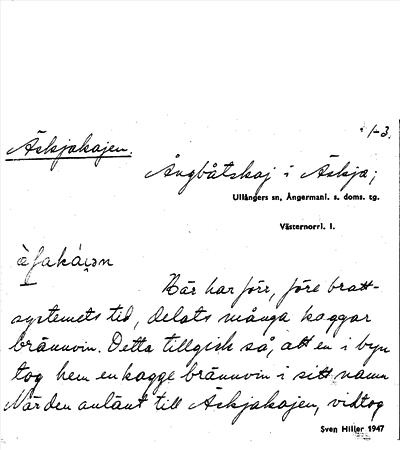 1-3.
Äskjakajen.
Ångbåtskaj i Äskja;
Ullångers sn, Ångermanl. s. doms. tg.
Västernorrl. l.
Här har förr, före bratt-
systemets tid, delats många kaggar
brännvin. Detta tillgick så, att en i byn
tog hem en kagge brännvin i sitt namn
När den anlänt till Äskjakajen, vidtog
Sven Hiller 1947